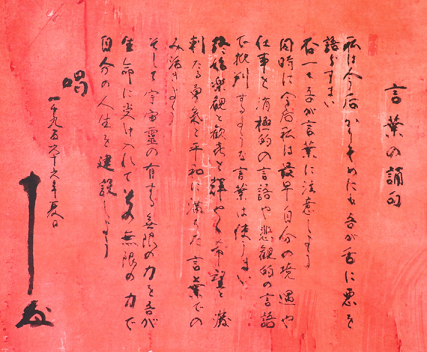 言葉の誦句
私は今后かりそめにも吾が舌に悪を
語らすまい
否一々吾が言葉に注意しよう
同時に今后私は最早自分の境遇や
仕事を消極的の言語や悲観的の言語
で批判するような言葉は使うまい
終始楽観と歓喜と輝やく希望と溌
剌たる勇気と平和に満ちた言葉での
み活きよう
そして宇宙霊の有する無限の力を吾が
生命に受け入れてその無限の力で
自分の人生を建設しよう
唱
年夏日